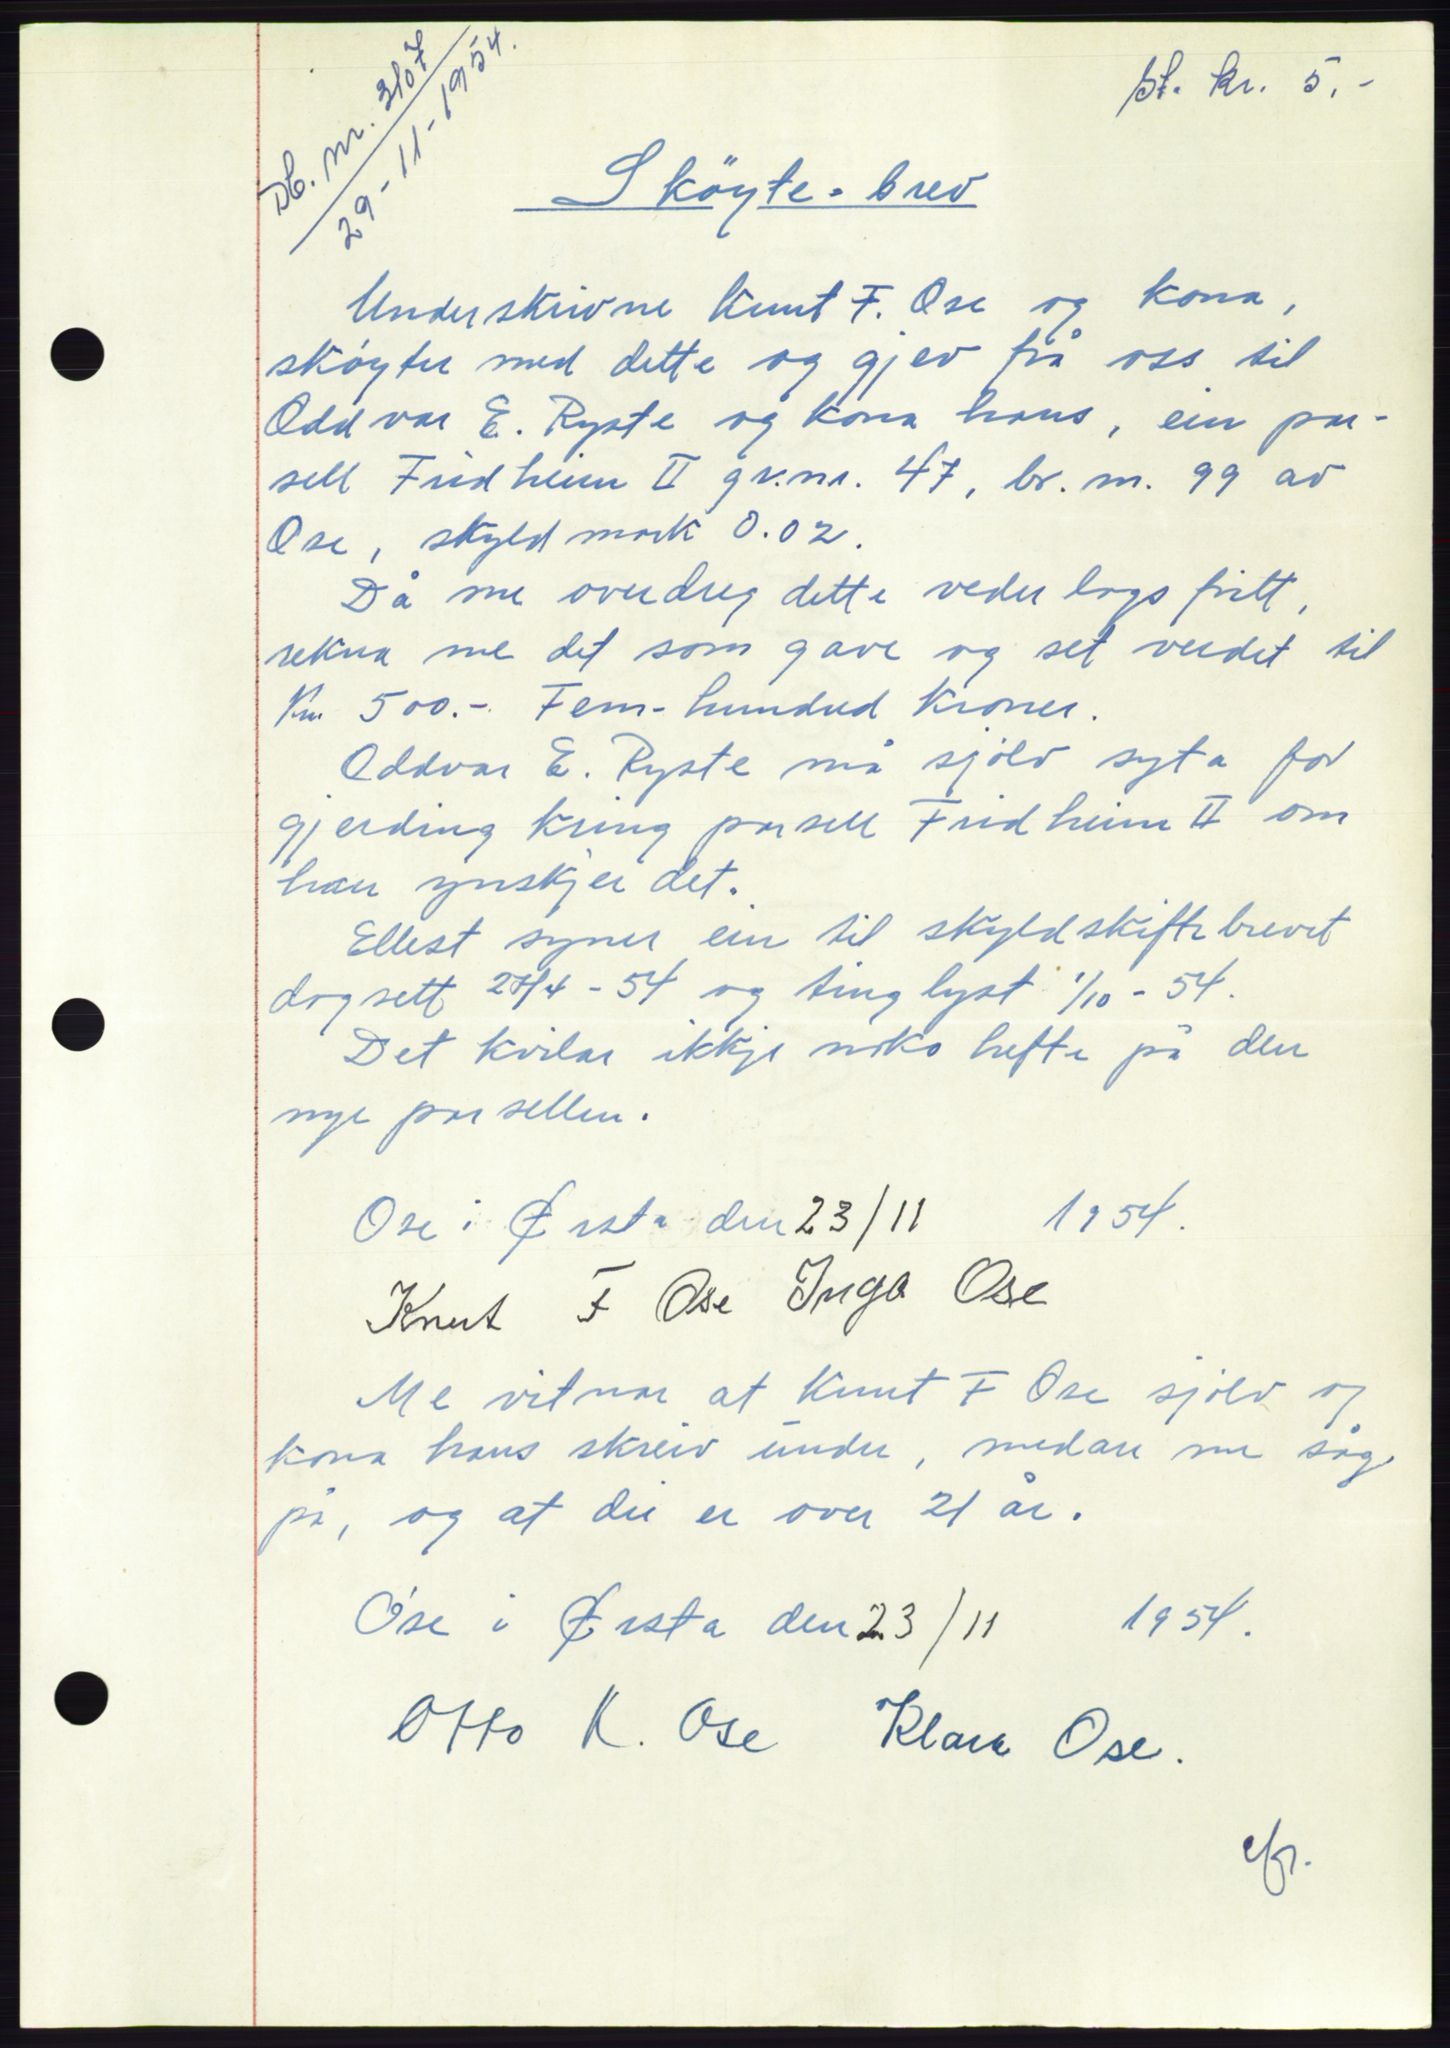 Db. nr. 3107
29-11-1954.
St. kr. 5.-
Sköyte-brev
Underskrivne Knut F. Ose og kona,
skøyter med dette og gjev frå oss til
Oddvar E. Ryste og kona hans, ein par-
sell Fridheim II gr.nr. 47, br. nr. 99 av
Ose, skyldmark 0.02.
Då me overdreg dette vederlagsfritt,
rekna me det som gave og set verdet til
Kr. 500.- Fem-hundred kroner.
Oddvar E. Ryste må sjölv syta for
gjerding kring parsell Fridheim II om
han ynskjer det.
Ellest syner ein til skyldskiftebrevet
dagsett 27/4-54 og tinglyst 1/10-54.
Det kvilar ikkje noko hefte på den
nye parsellen.
Ose i Ørsta den 23/11 1954.
Knut F Ose Inga Ose
Me vitnar at Knut F Ose sjölv og
kona hans skreiv under, medan me såg
på, og at dei er over 21 år.
Ose i Ørsta den 23/11 1954.
Otto K. Ose Klara Ose.